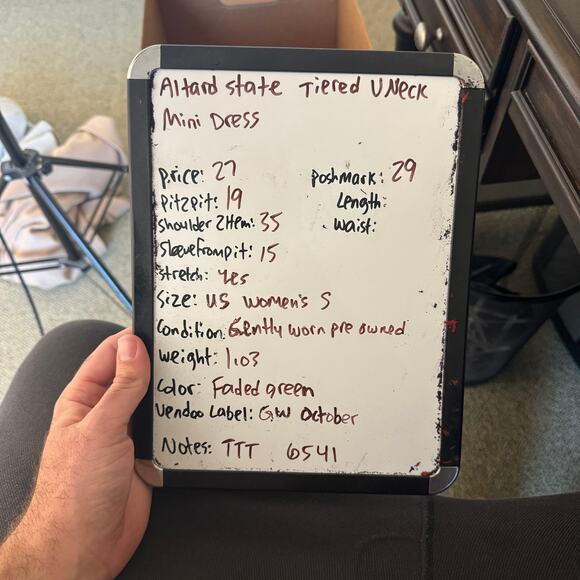 Altard state Tiered V Neck
Mini Dress
price: 27
poshmark: 29
pit2pit: 19
Length:
shoulder 2 Hem: 35
waist:
Sleeve from pit: 15
stretch: yes
Size: US women's S
Condition: Gently worn pre owned
weight: 1.03
Color: Faded green
Vendoo Label: GW October
Notes: TTT 6541